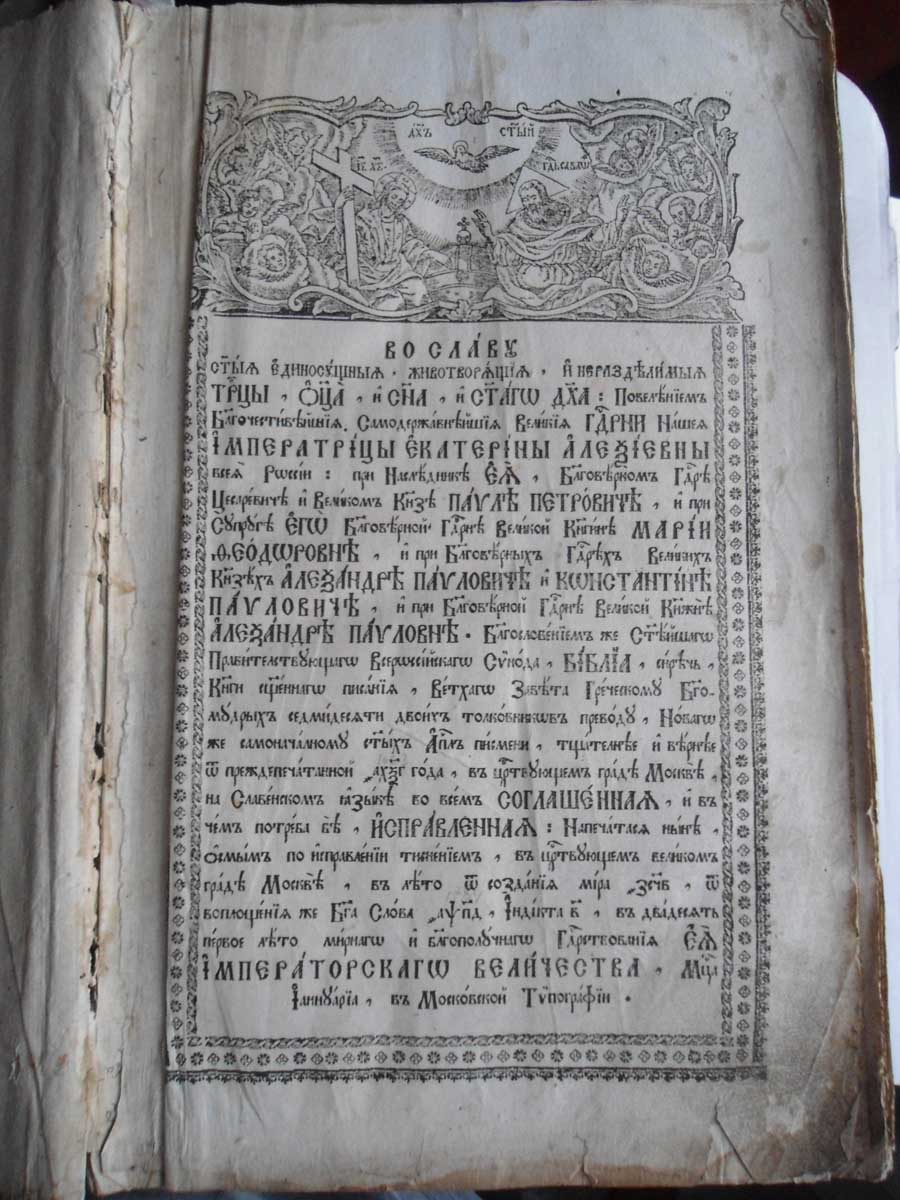 Дх҃ъ Ст҃ы́й
І҆с҃ Хс҃
ВО СЛА́ВꙊ
Ст҃ы́ѧ є҆диносꙋ́щныѧ, животворѧ́щїѧ, и҆ нераздѣли́мыѧ
Трⷪ҇цы, Ѻ҆ц҃а̀, и҆ Сн҃а, и҆ Ст҃а́гѡ Дх҃а: Повелѣ́нїемъ
Бл҃гочести́вѣйшїѧ, Самодержа́внѣйшїѧ Вели́кїѧ Гдⷭ҇рни На́шеѧ
І҆МПЕРАТРІ́ЦЫ Є҆КАТЕРІ́НЫ А҆ЛЕѮІ́ЕВНЫ
всеѧ̀ Рѡссі́и: при Наслѣ́дникѣ Є҆Ѧ̀, Бл҃говѣ́рномъ Гдⷭ҇рѣ
Цесаре́вичѣ и҆ Вели́комъ Кнѧ́зѣ ПА́ѴЛѢ ПЕТРО́ВИЧѢ, и҆ при
Сꙋпрꙋ́гѣ Є҆ГѠ̀ Бл҃говѣ́рной Гдⷭ҇рнѣ Вели́кой Кнѧги́нѣ МАРІ́И
Ѳ҆ЕО́ДѠРОВНѢ, и҆ при Бл҃говѣ́рныхъ Гдⷭ҇рехъ Вели́кихъ
Кнѧ́зѣхъ А҆ЛЕѮА́НДРѢ ПА́ѴЛОВИЧѢ и҆ КѠНСТАНТІ́НѢ
ПА́ѴЛОВИЧѢ, и҆ при Бл҃говѣ́рной Гдⷭ҇рнѣ Вели́кой Кнѧжнѣ̀
А҆ЛЕѮА́НДРѢ ПА́ѴЛОВНѢ. Бл҃гослове́нїемъ же Ст҃ѣ́йшагѡ
Прави́телствꙋющагѡ Всерѡссі́йскагѡ Сѷно́да, БІ́БЛЇА, си́рѣчь,
Кни҄ги сщ҃е́ннагѡ писа́нїѧ, Ве́тхагѡ Завѣ́та Гре́ческомꙋ Бг҃о-
мꙋ́дрыхъ седми́десѧти двои́хъ толко́вникѡвъ прево́дꙋ, Но́вагѡ
же самонача́лномꙋ ст҃ы́хъ А҆пⷭ҇лъ пи́смени, тща́телнѣе и҆ вѣ́рнѣе
ѿ преждепеча́танной ҂а҃хѯ҃г го́да, въ црⷭ҇твꙋющемъ гра́дѣ Москвѣ̀,
на Славе́нскомъ ꙗ҆зы́кѣ во все́мъ СОГЛАШЕ́ННАѦ, и҆ въ
че́мъ потре́ба бѣ̀, И҆СПРА́ВЛЕННАѦ: Напеча́тасѧ ны́нѣ,
ѻ҆смы́мъ по и҆справле́нїи тисне́нїемъ, въ црⷭ҇твꙋющемъ вели́комъ
гра́дѣ Москвѣ̀, въ лѣ́то ѿ созда́нїѧ мі́ра ҂зс҃чв, ѿ
воплоще́нїѧ же Бг҃а Сло́ва ҂аѱ҃пд, І҆ндікта в҃, въ два́десѧть
пе́рвое лѣ́то ми́рнагѡ и҆ бл҃гополꙋ́чнагѡ Гдⷭ҇рствованїѧ Є҆Ѧ̀
І҆МПЕРА́ТОРСКАГѠ ВЕЛИ́ЧЕСТВА, Мцⷭ҇а
І҆аннꙋа́рїа, въ Моско́вской Тѷпогра́фїи.